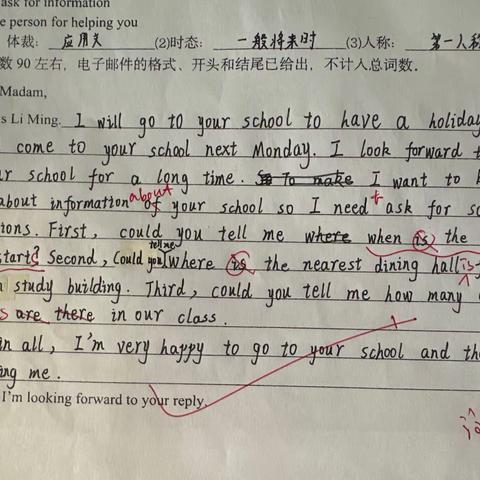 ask for information
e person for helping you
体裁: 应用文 (2)时态: 一般将来时 (3)人称: 第一人称
数 90 左右，电子邮件的格式、开头和结尾已给出，不计入总词数.
Madam,
s Li Ming. I will go to your school to have a holiday
come to your school next Monday. I look forward t
r school for a long time. So To make I want to k
about
about information of your school so I need t ask for so
ions. First, could you tell me where when is the
tell me
start? Second, (Could you) where is the nearest dining hall is f
study building. Third, could you tell me how many
s are there in our class.
in all, I'm very happy to go to your school and th
ing me.
I'm looking forward to your reply.